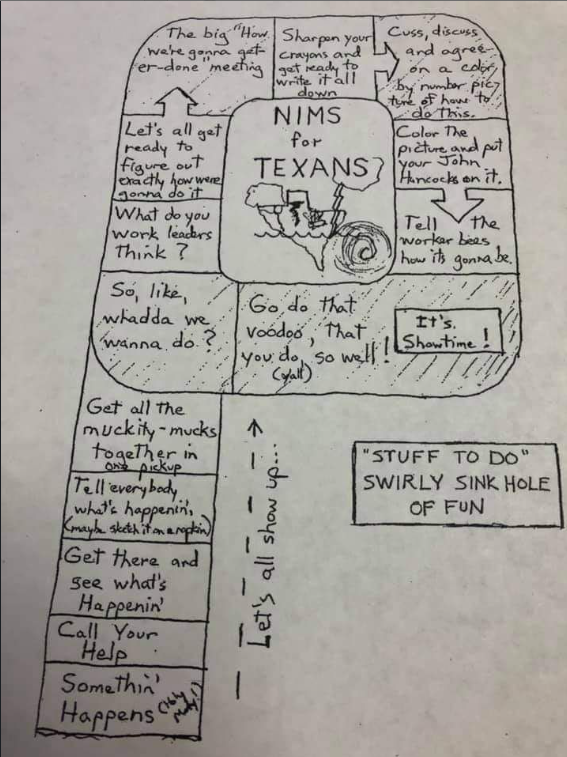 The big "How
we're gonna get-
er-done" meeting
Sharpen your
crayons and
get ready to
write it all
down
Cuss, discuss
and agree
on a color
by number pic-
ture of how to
do this.
Let's all get
ready to
figure out
exactly how were
gonna do it
NIMS
for
TEXANS
Color the
picture and put
your John
Hancocks on it.
What do you
work leaders
think?
Tell the
worker bees
how its gonna be.
So, like,
whadda we
wanna do?
Go do that
voodoo, that
you do, so well!
(y'all)
It's
Showtime!
Get all the
muckity-mucks
together in
one pickup
Tell everybody
what's happenin',
(maybe sketch it on a napkin)
Get there and
see what's
Happenin'
Call Your
Help
Somethin'
Happens
Let's all show up...
"STUFF TO DO"
SWIRLY SINK HOLE
OF FUN